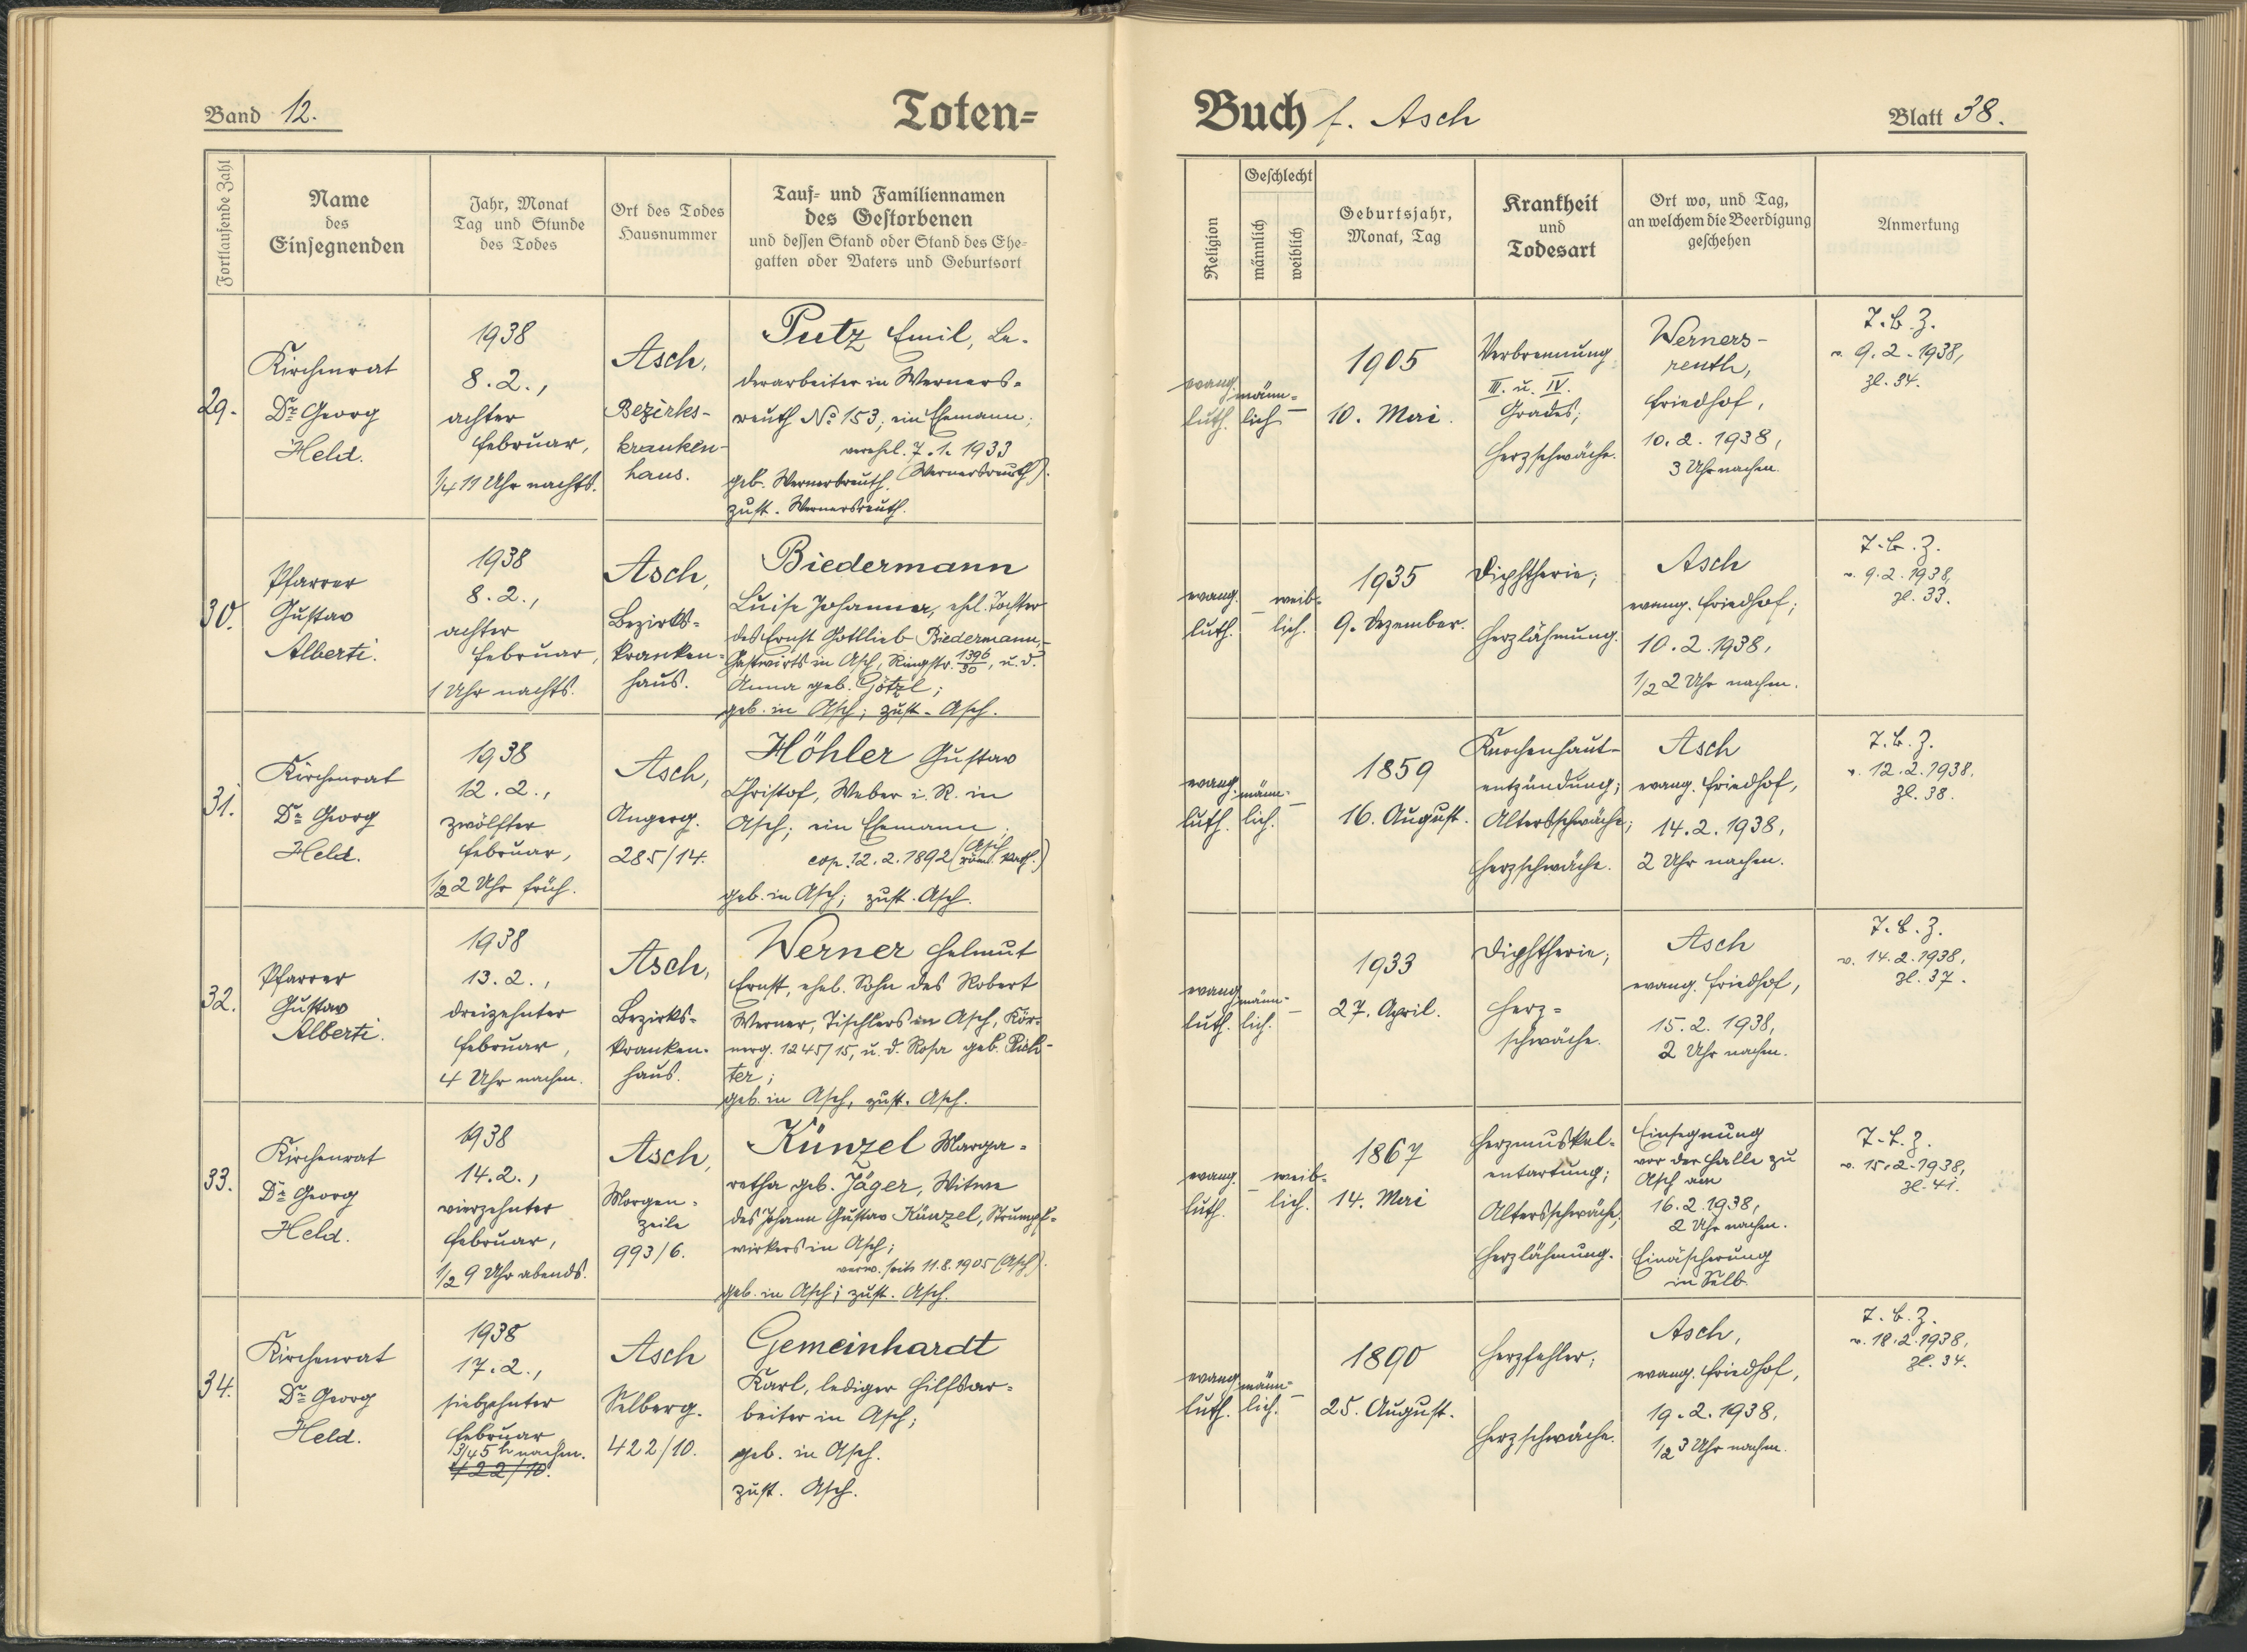 Band 12.
Toten=
Fortlaufende Zahl
Name
des
Einsegnenden
Jahr, Monat
Tag und Stunde
des Todes
Ort des Todes
Hausnummer
Tauf- und Familiennamen
des Gestorbenen
und dessen Stand oder Stand des Ehe-
gatten oder Vaters und Geburtsort
29.
Kirchenrat
Dr. Georg
Held.
1938
8.2.,
achter
Februar,
1/4 11 Uhr nachts.
Asch,
Bezirks-
kranken-
haus.
Putz Emil, Le-
derarbeiter in Werners-
reuth No 153, ein Ehemann;
verehel. 7.1.1933
(Wernersreuth).
geb. Wernersreuth.
zust. Wernersreuth.
30.
Pfarrer
Gustav
Alberti.
1938
8.2.,
achter
Februar,
1 Uhr nachts.
Asch,
Bezirks=
kranken=
haus.
Biedermann
Luise Johanna, ehel. Tochter
des Ernst Gottlieb Biedermann,
Gastwirts in Asch, Ringstr. 1396/30, u. d.
Anna geb. Götzl;
geb. in Asch; zust. Asch.
31.
Kirchenrat
Dr. Georg
Held.
1938
12.2.,
zwölfter
Februar,
1/2 2 Uhr früh.
Asch,
Angerg.
285/14.
Höhler Gustav
Christof, Weber i. R. in
Asch; ein Ehemann;
cop. 12.2.1892 (Asch röm. kath.)
geb. in Asch; zust. Asch.
32.
Pfarrer
Gustav
Alberti.
1938
13.2.,
dreizehnter
Februar,
4 Uhr nachm.
Asch,
Bezirks=
kranken-
haus.
Werner Helmut
Ernst, ehel. Sohn des Robert
Werner, Tischlers in Asch, Kör-
nerg. 1245/15, u. d. Rosa geb. Rich-
ter;
geb. in Asch, zust. Asch.
33.
Kirchenrat
Dr. Georg
Held.
1938
14.2.,
vierzehnter
Februar,
1/2 9 Uhr abends.
Asch,
Morgen-
zeile
993/6.
Künzel Marga-
retha geb. Jäger, Witwe
des Johann Gustav Künzel, Strumpf-
wirkers in Asch;
verw. seit 11.8.1905 (Asch).
geb. in Asch; zust. Asch.
34.
Kirchenrat
Dr. Georg
Held.
1938
17.2.,
siebzehnter
Februar,
3/4 5 h nachm.
422/10.
Asch
Selberg.
422/10.
Gemeinhardt
Karl, lediger Hilfsar-
beiter in Asch;
geb. in Asch.
zust. Asch.
Buch f. Asch
Blatt 38.
Religion
Geschlecht
männlich
weiblich
Geburtsjahr,
Monat, Tag
Krankheit
und
Todesart
Ort wo, und Tag,
an welchem die Beerdigung
geschehen
Anmerkung
evang.
luth.
männ-
lich
–
1905
10. Mai.
Verbrennung
III. u. IV.
Grades;
Herzschwäche.
Werners-
reuth,
Friedhof,
10.2.1938,
3 Uhr nachm.
T.B.Z.
v. 9.2.1938,
Zl. 34.
evang.
luth.
–
weib-
lich.
1935
9. Dezember.
Diphtherie;
Herzlähmung.
Asch
evang. Friedhof;
10.2.1938,
1/2 2 Uhr nachm.
T.B.Z.
v. 9.2.1938,
Zl. 33.
evang.
luth.
männ-
lich.
–
1859
16. August.
Knochenhaut-
entzündung;
Altersschwäche;
Herzschwäche.
Asch
evang. Friedhof,
14.2.1938,
2 Uhr nachm.
T.B.Z.
v. 12.2.1938.
Zl. 38.
evang.
luth.
männ-
lich.
–
1933
27. April.
Diphtherie;
Herz=
schwäche.
Asch
evang. Friedhof,
15.2.1938,
2 Uhr nachm.
T.B.Z.
v. 14.2.1938,
Zl. 37.
evang.
luth.
–
weib-
lich.
1867
14. Mai
Herzmuskel-
entartung;
Altersschwäche;
Herzlähmung.
Einsegnung
vor der Halle zu
Asch am
16.2.1938,
2 Uhr nachm.
Einäscherung
in Selb.
T.B.Z.
v. 15.2.1938,
Zl. 41.
evang.
luth.
männ-
lich.
–
1890
25. August.
Herzfehler;
Herzschwäche.
Asch,
evang. Friedhof,
19.2.1938,
1/2 3 Uhr nachm.
T.B.Z.
v. 18.2.1938,
Zl. 34.